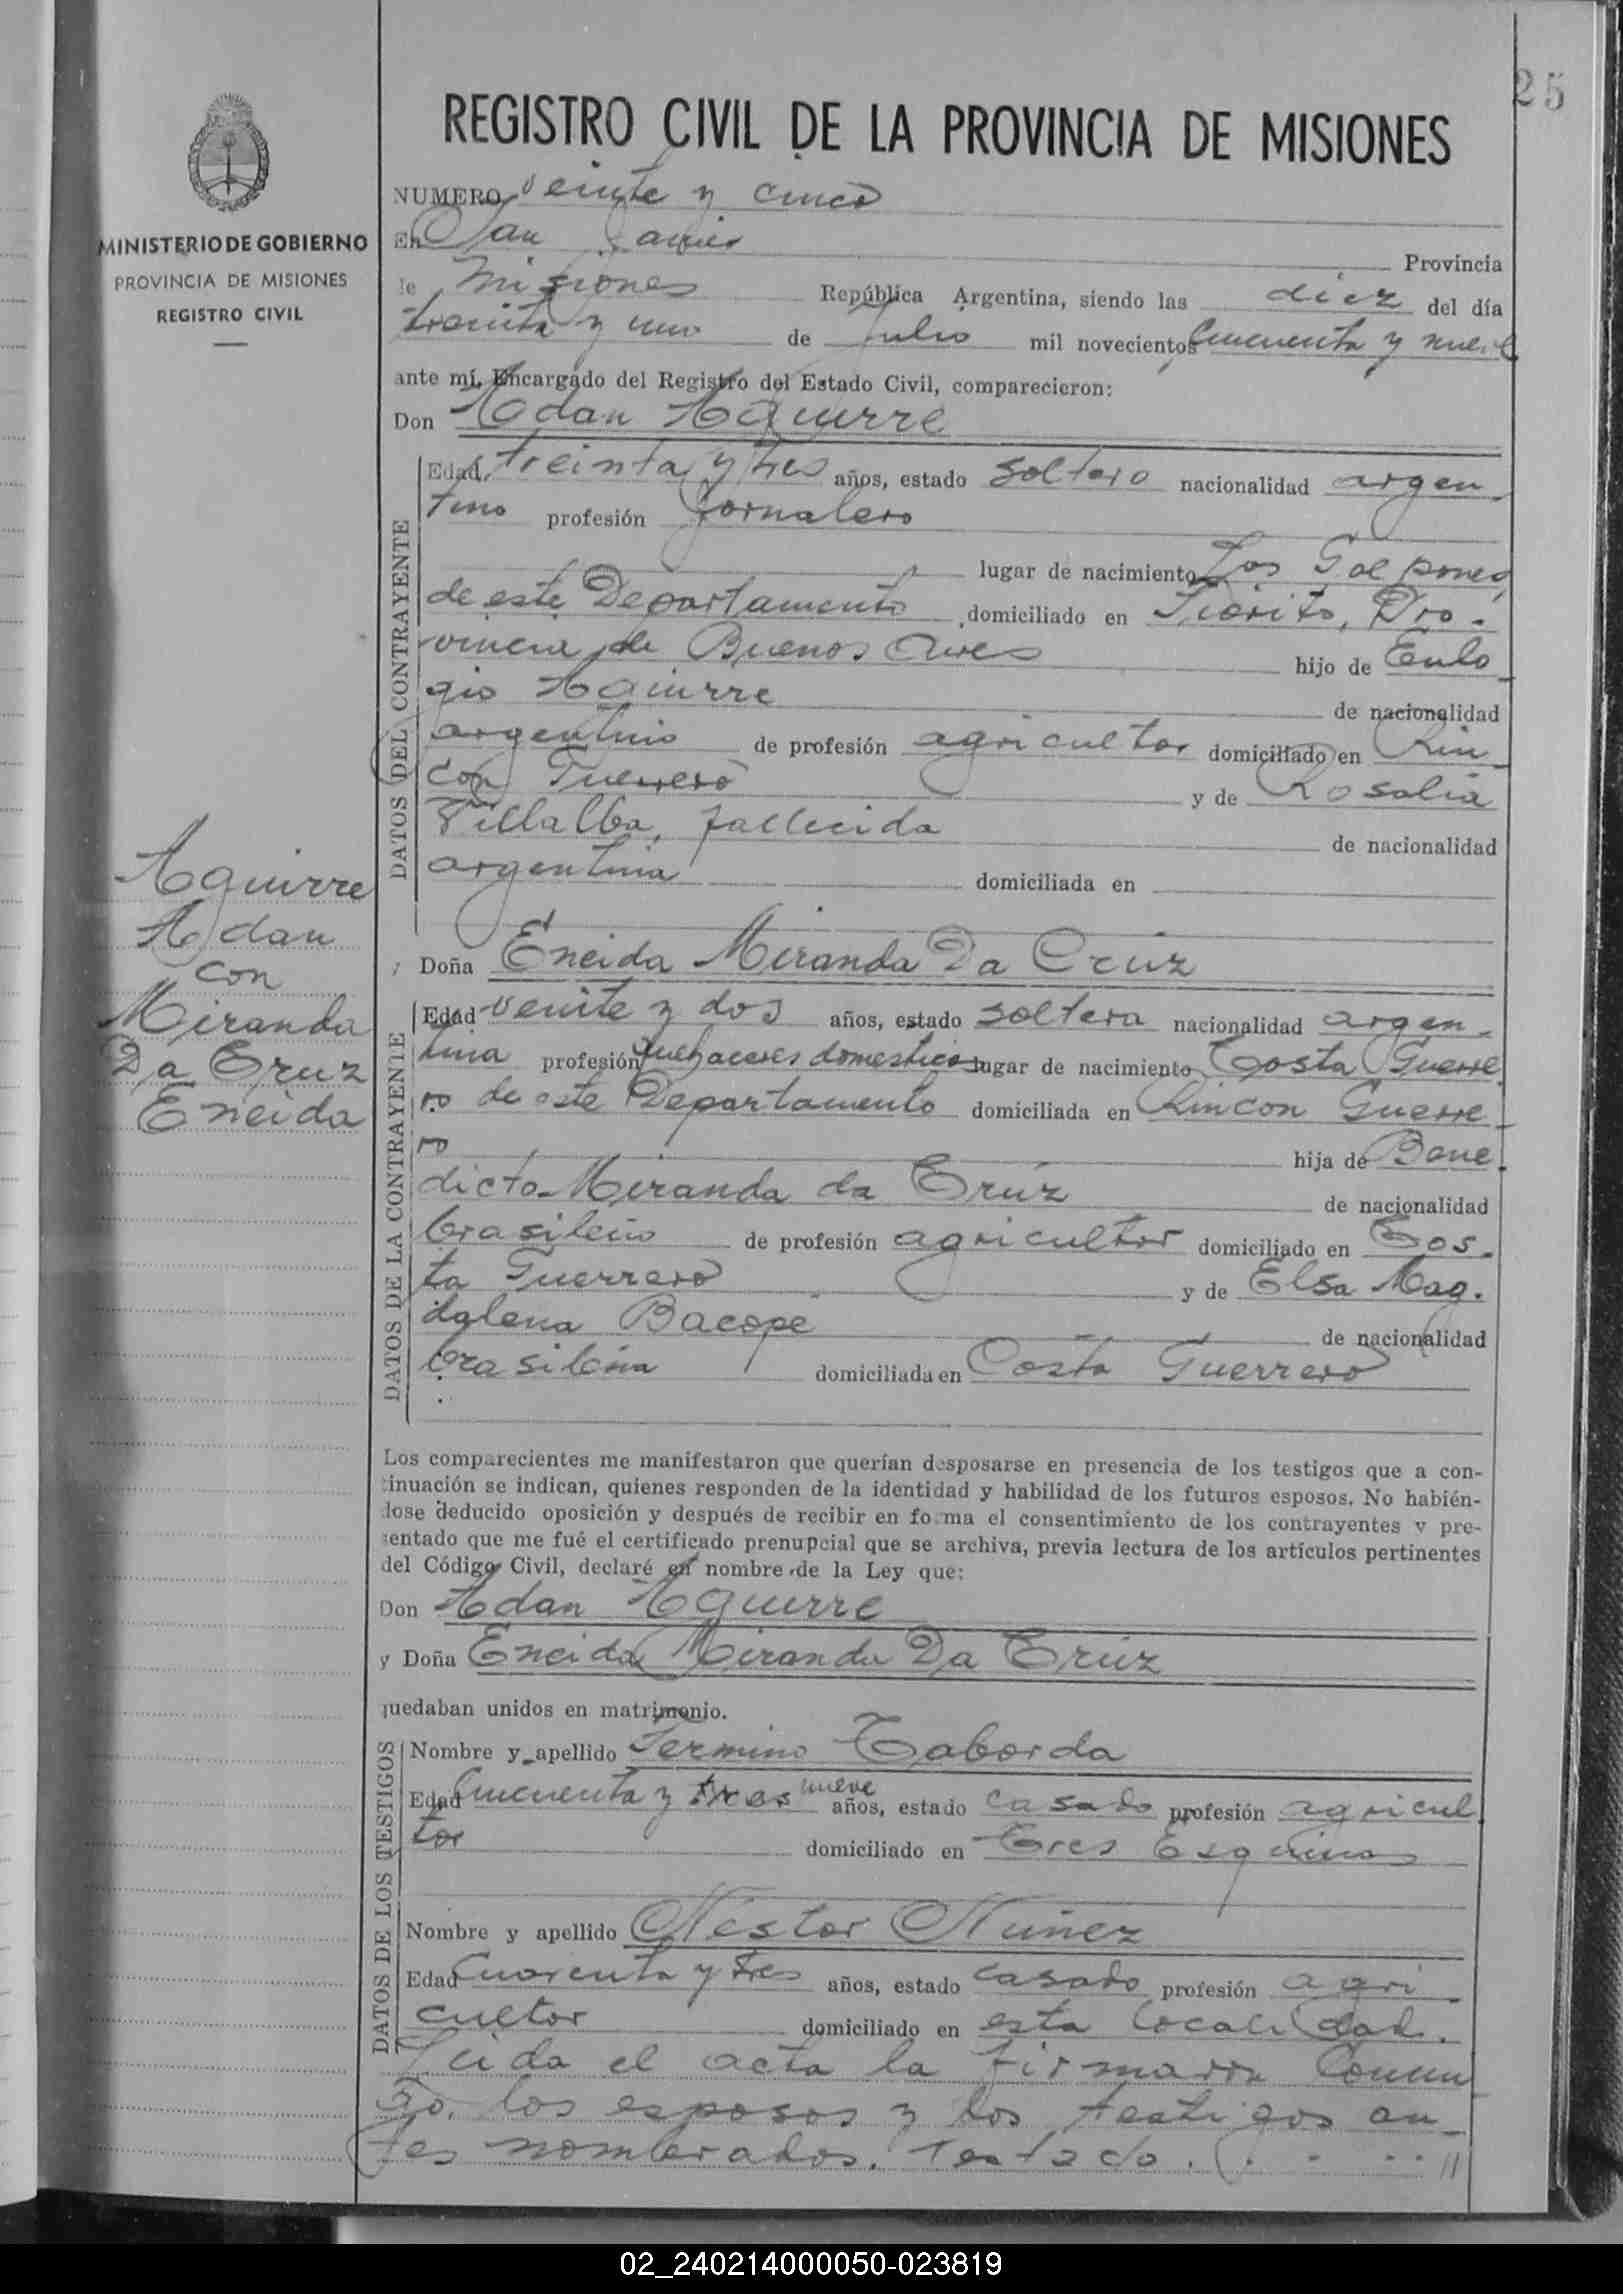 25
REGISTRO CIVIL DE LA PROVINCIA DE MISIONES
MINISTERIO DE GOBIERNO
PROVINCIA DE MISIONES
REGISTRO CIVIL
NUMERO veinte y cinco
En San Javier Provincia
de Misiones República Argentina, siendo las diez del día
treinta y uno de Julio mil novecientos cincuenta y nueve
ante mí, Encargado del Registro del Estado Civil, comparecieron:
Don Adan Aguirre
DATOS DEL CONTRAYENTE
Edad treinta y tres años, estado soltero nacionalidad argen
tino profesión jornalero
lugar de nacimiento Los Galpones
de este Departamento domiciliado en Fiorito, Pro-
vincia de Buenos Aires hijo de Eulo
gio Aguirre de nacionalidad
argentino de profesión agricultor domiciliado en Rin-
con Guerrero y de Rosalia
Villalba, fallecida de nacionalidad
argentina domiciliada en
Aguirre
Adan
con
Miranda
Da Cruz
Eneida
y Doña Eneida Miranda Da Cruz
DATOS DE LA CONTRAYENTE
Edad veinte y dos años, estado soltera nacionalidad argen-
tina profesión quehaceres domesticos lugar de nacimiento Costa Guerre
ro de este Departamento domiciliada en Rincon Guerre-
ro hija de Bene-
dicto Miranda da Cruz de nacionalidad
brasileño de profesión agricultor domiciliado en Cos-
ta Guerrero y de Elsa Mag-
dalena Bacope de nacionalidad
brasileña domiciliada en Costa Guerrero
Los comparecientes me manifestaron que querían desposarse en presencia de los testigos que a con-
tinuación se indican, quienes responden de la identidad y habilidad de los futuros esposos. No habién-
dose deducido oposición y después de recibir en forma el consentimiento de los contrayentes y pre-
sentado que me fué el certificado prenupcial que se archiva, previa lectura de los artículos pertinentes
del Código Civil, declaré en nombre de la Ley que:
Don Adan Aguirre
y Doña Eneida Miranda Da Cruz
quedaban unidos en matrimonio.
DATOS DE LOS TESTIGOS
Nombre y apellido Fermino Taborda
Edad Cincuenta y tres nueve años, estado casado profesión agricul
tor domiciliado en Tres Esquinas
Nombre y apellido Néstor Núñez
Edad Cuarenta y tres años, estado casado profesión agri
cultor domiciliado en esta localidad.
Leida el acta la firman conmi
go. los esposos y los testigos an-
tes nombrados. Testado.
02_240214000050-023819